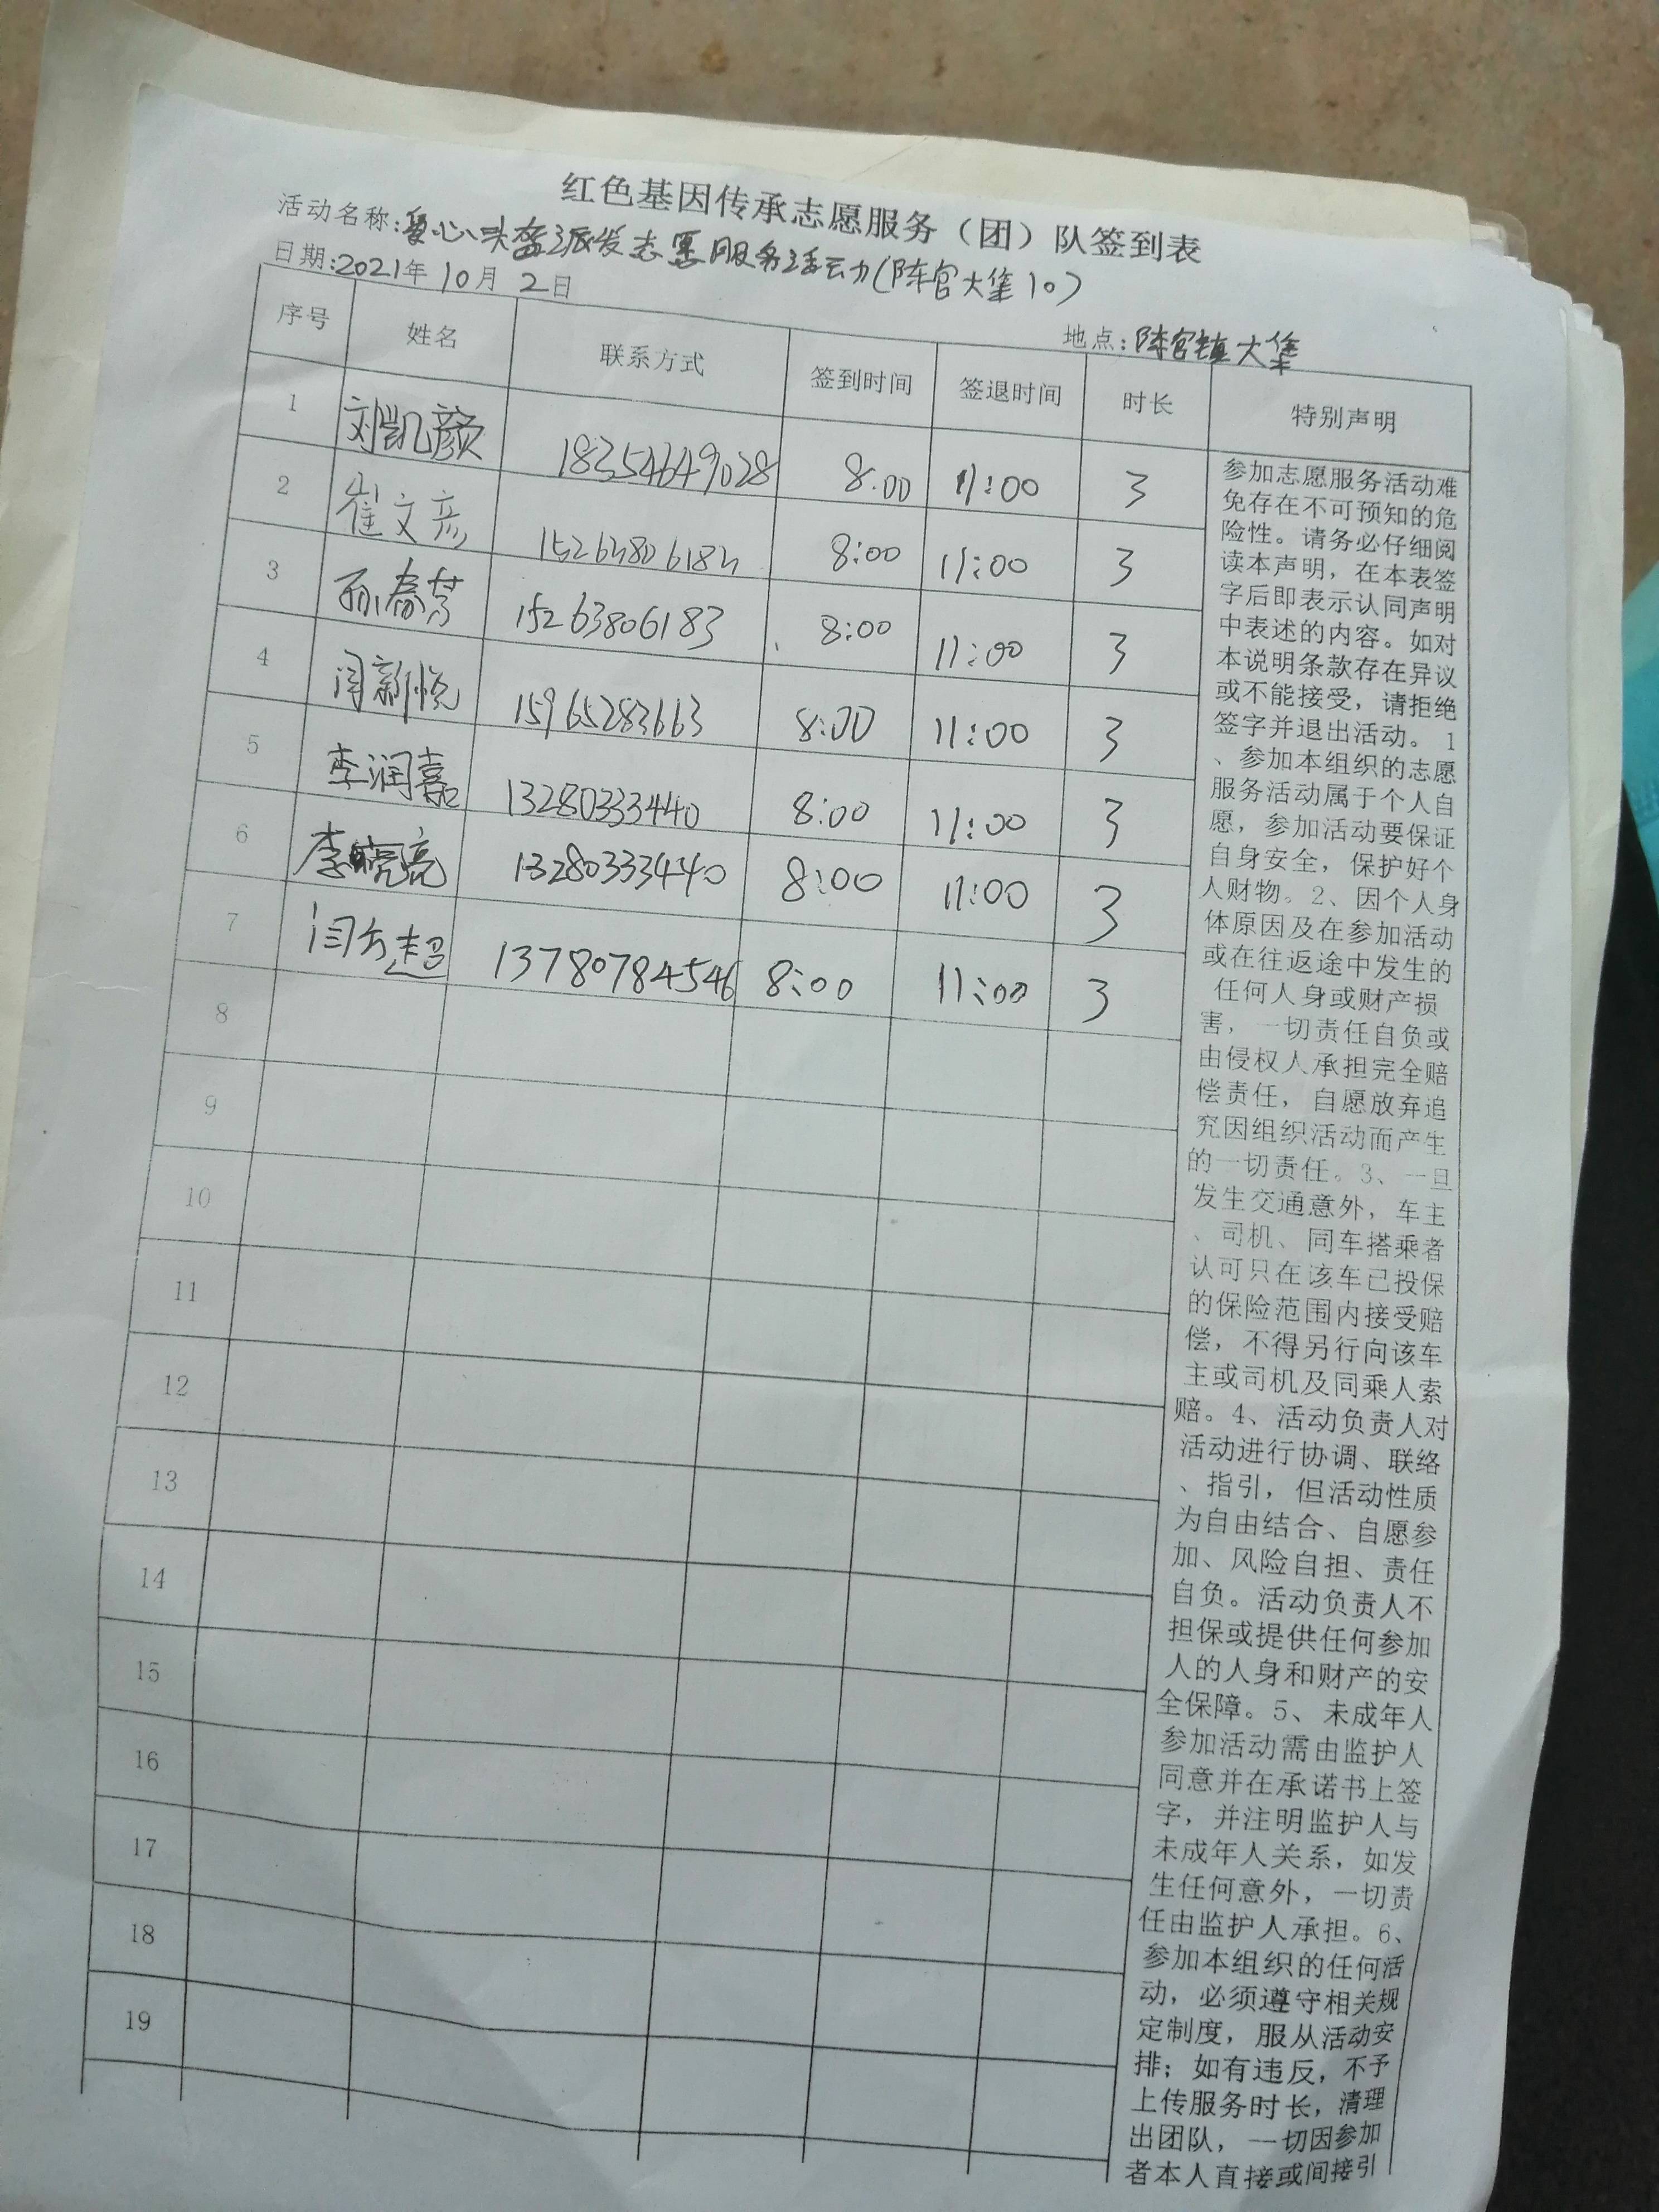 红色基因传承志愿服务（团）队签到表
活动名称:爱心头盔派发志愿服务活动(陈官大集10)
日期:2021年10月2日
地点:陈官镇大集
序号 姓名 联系方式 签到时间 签退时间 时长 特别声明
1 刘凯颜 18354649028 8:00 11:00 3
2 崔文彦 15263806183 8:00 11:00 3
3 孙春芳 15263806183 8:00 11:00 3
4 闫新悦 15965283663 8:00 11:00 3
5 李润嘉 13280333440 8:00 11:00 3
6 李晓亮 13280333440 8:00 11:00 3
7 闫方超 13780784546 8:00 11:00 3
8
9
10
11
12
13
14
15
16
17
18
19
参加志愿服务活动难
免存在不可预知的危
险性。请务必仔细阅
读本声明，在本表签
字后即表示认同声明
中表述的内容。如对
本说明条款存在异议
或不能接受，请拒绝
签字并退出活动。1
、参加本组织的志愿
服务活动属于个人自
愿，参加活动要保证
自身安全，保护好个
人财物。2、因个人身
体原因及在参加活动
或在往返途中发生的
任何人身或财产损
害，一切责任自负或
由侵权人承担完全赔
偿责任，自愿放弃追
究因组织活动而产生
的一切责任。3、一旦
发生交通意外，车主
、司机、同车搭乘者
认可只在该车已投保
的保险范围内接受赔
偿，不得另行向该车
主或司机及同乘人索
赔。4、活动负责人对
活动进行协调、联络
、指引，但活动性质
为自由结合、自愿参
加、风险自担、责任
自负。活动负责人不
担保或提供任何参加
人的人身和财产的安
全保障。5、未成年人
参加活动需由监护人
同意并在承诺书上签
字，并注明监护人与
未成年人关系，如发
生任何意外，一切责
任由监护人承担。6、
参加本组织的任何活
动，必须遵守相关规
定制度，服从活动安
排；如有违反，不予
上传服务时长，清理
出团队，一切因参加
者本人直接或间接引